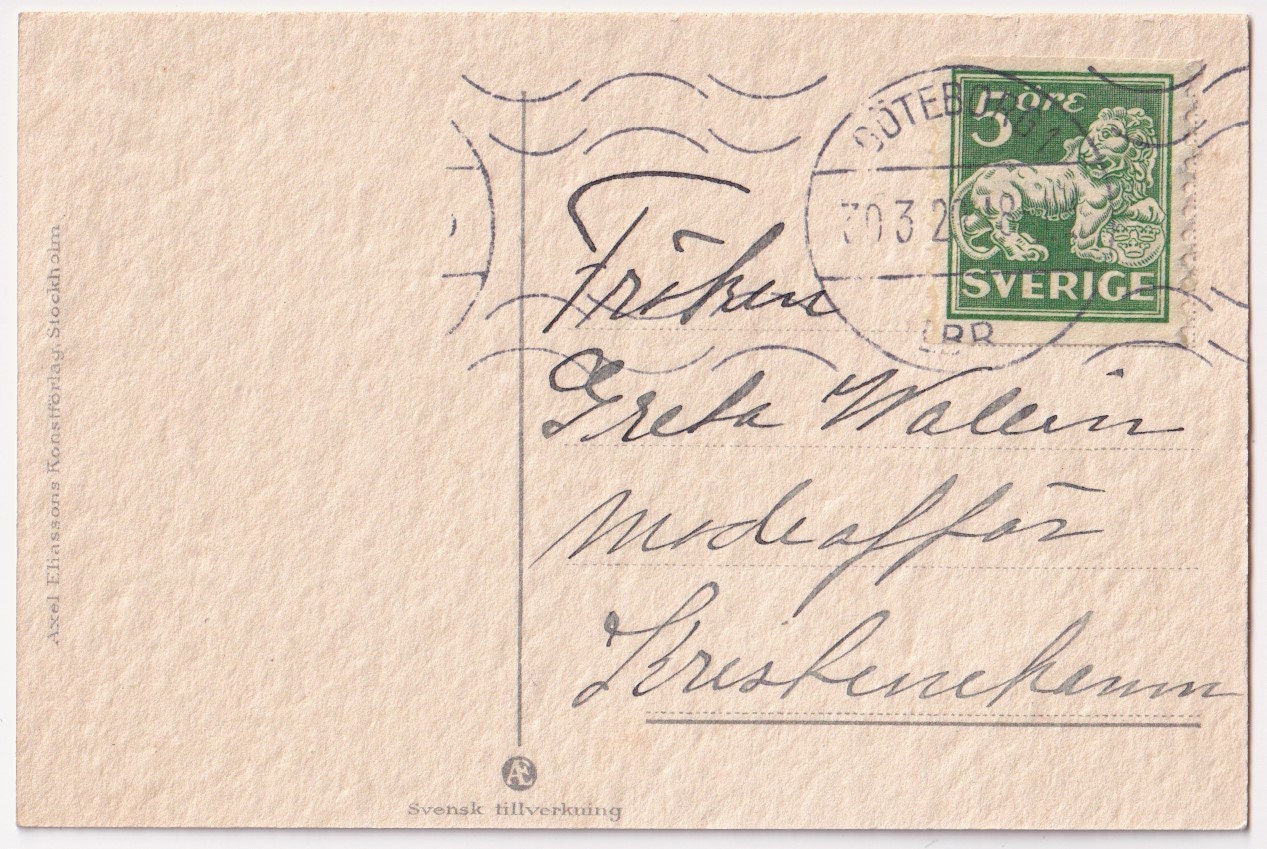 GÖTEBORG 1
5 ÖRE
30 3 2
LBR
SVERIGE
Fröken
Greta Wallin
Modeaffär
Kristinehamn
Axel Eliassons Konstförlag, Stockholm
Æ
Svensk tillverkning